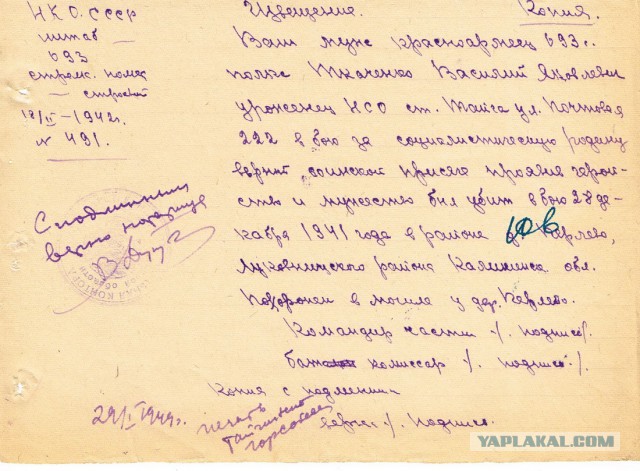 Н.К.О. СССР
штаб
693
стрелк. полка
— строевой
12/II – 1942г.
№ 491.
Извещение.
Копия.
Ваш муж красноармеец 693 с.
полка Ткаченко Василий Яковлевич
уроженец НСО ст. Тайга ул. Почтовая
222 в бою за социалистическую родину
верный воинской присяге проявив герой-
ство и мужество был убит в бою 28 де-
кабря 1941 года в районе д. Керлево,
Луковицкого района Калининск обл.
Похоронен в могиле у дер. Керлево.
Командир части /. подпись/.
комиссар /. подпись/.
Копия с подлинни-
верна /. подпись.
С подлинным
верно
29/I 1944г.
печать
Тайгинский
горсовет
YAPLAKAL.COM